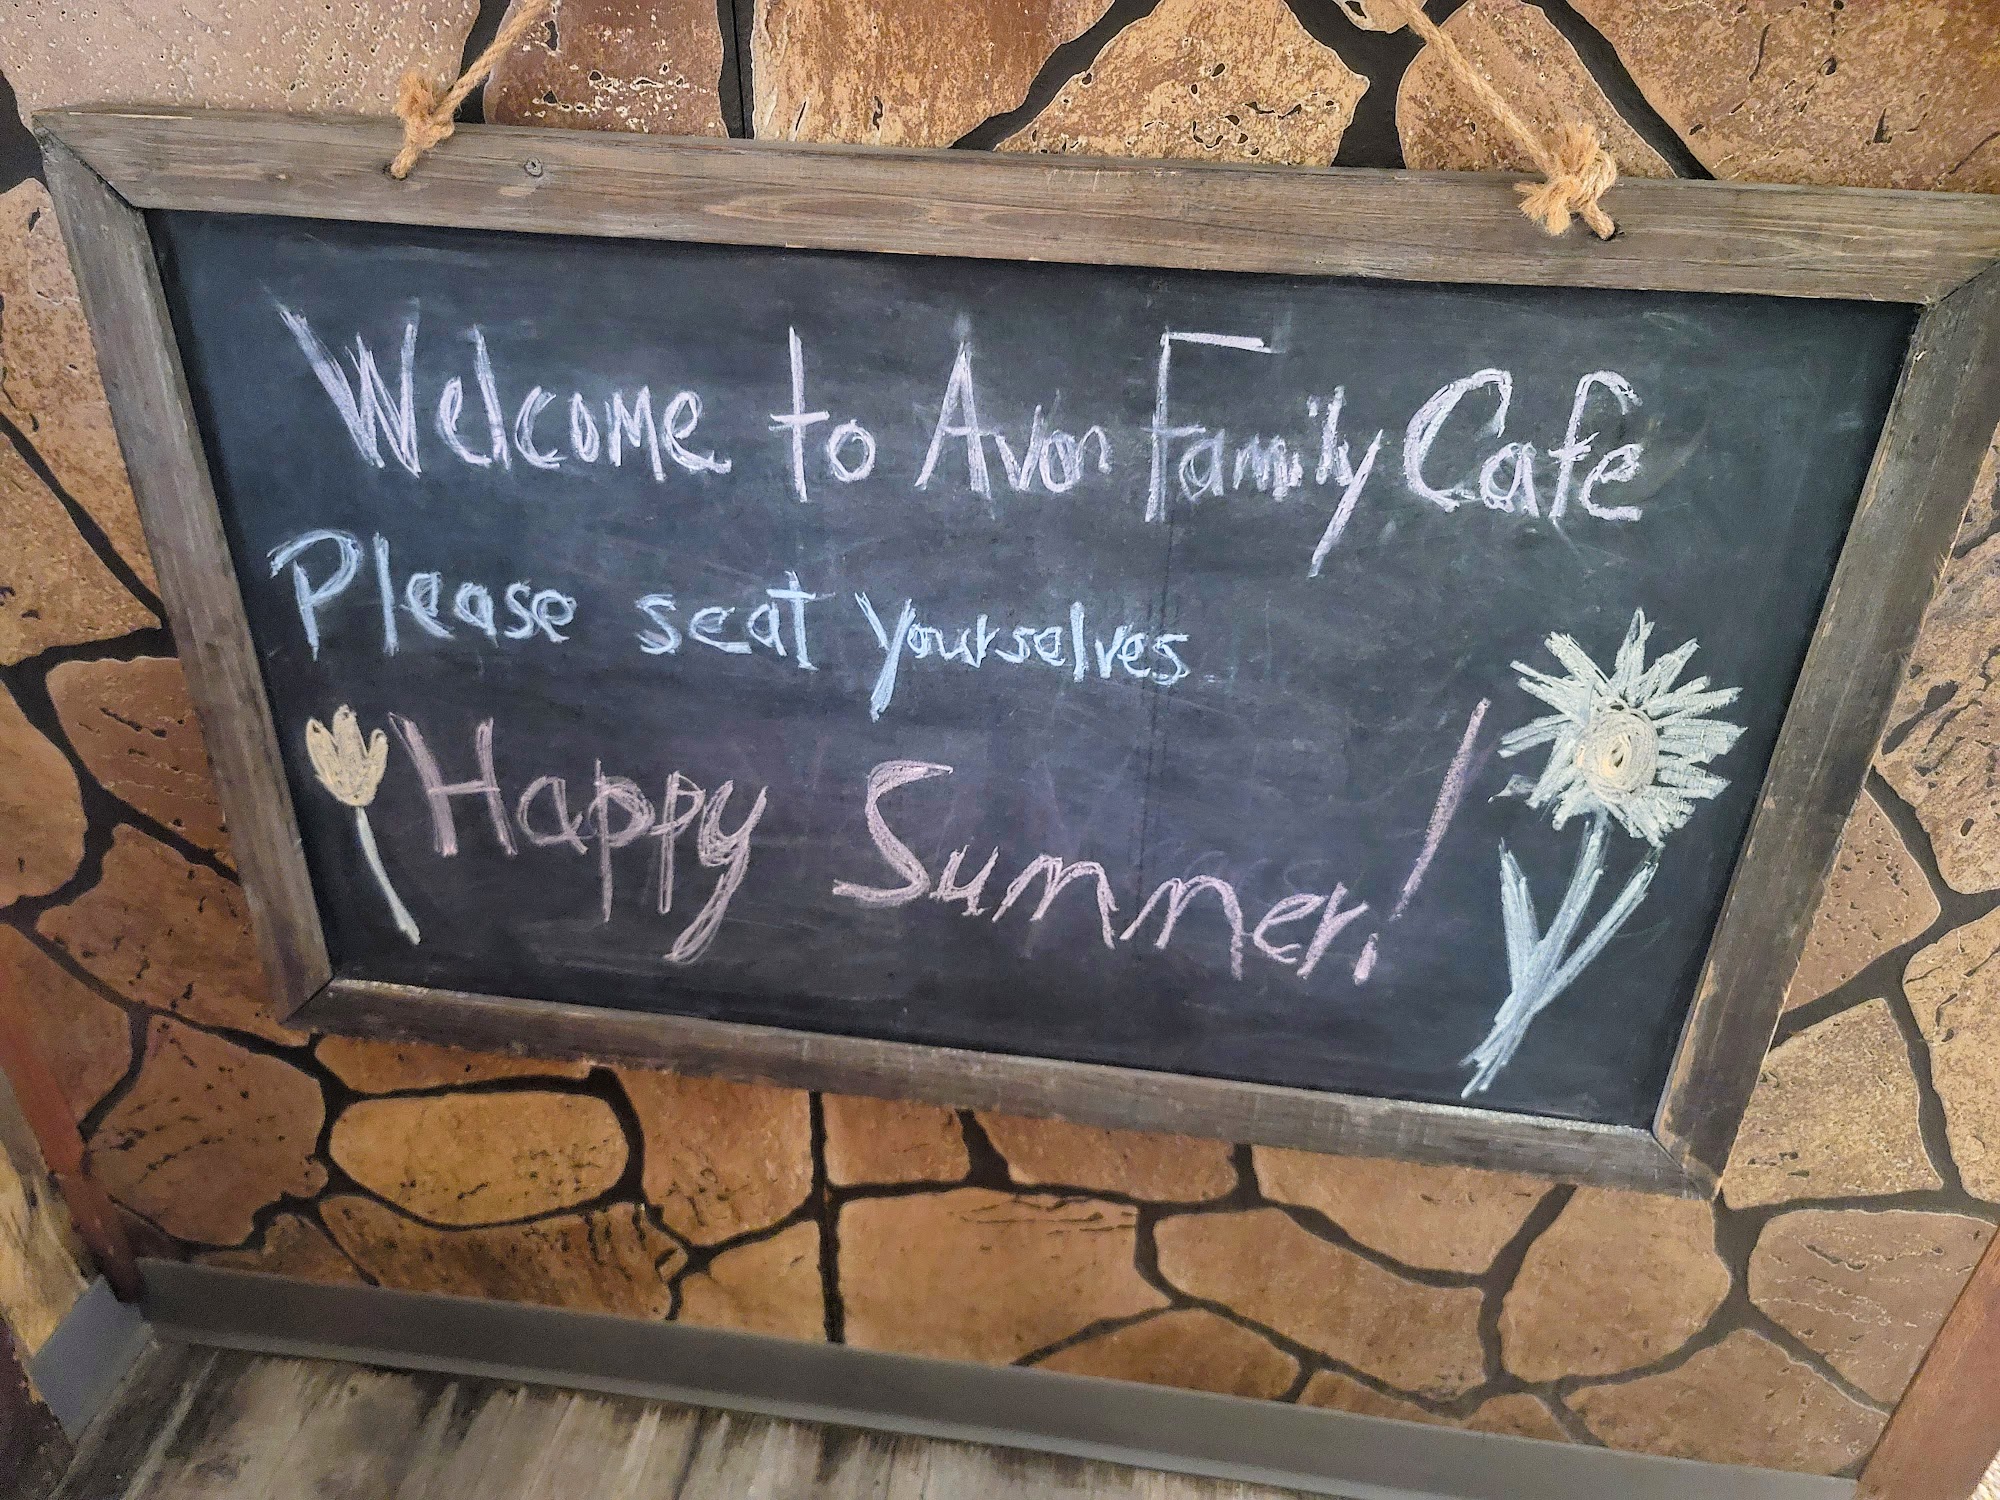 Welcome to Avon Family Cafe
Please seat yourselves
Happy Summer!